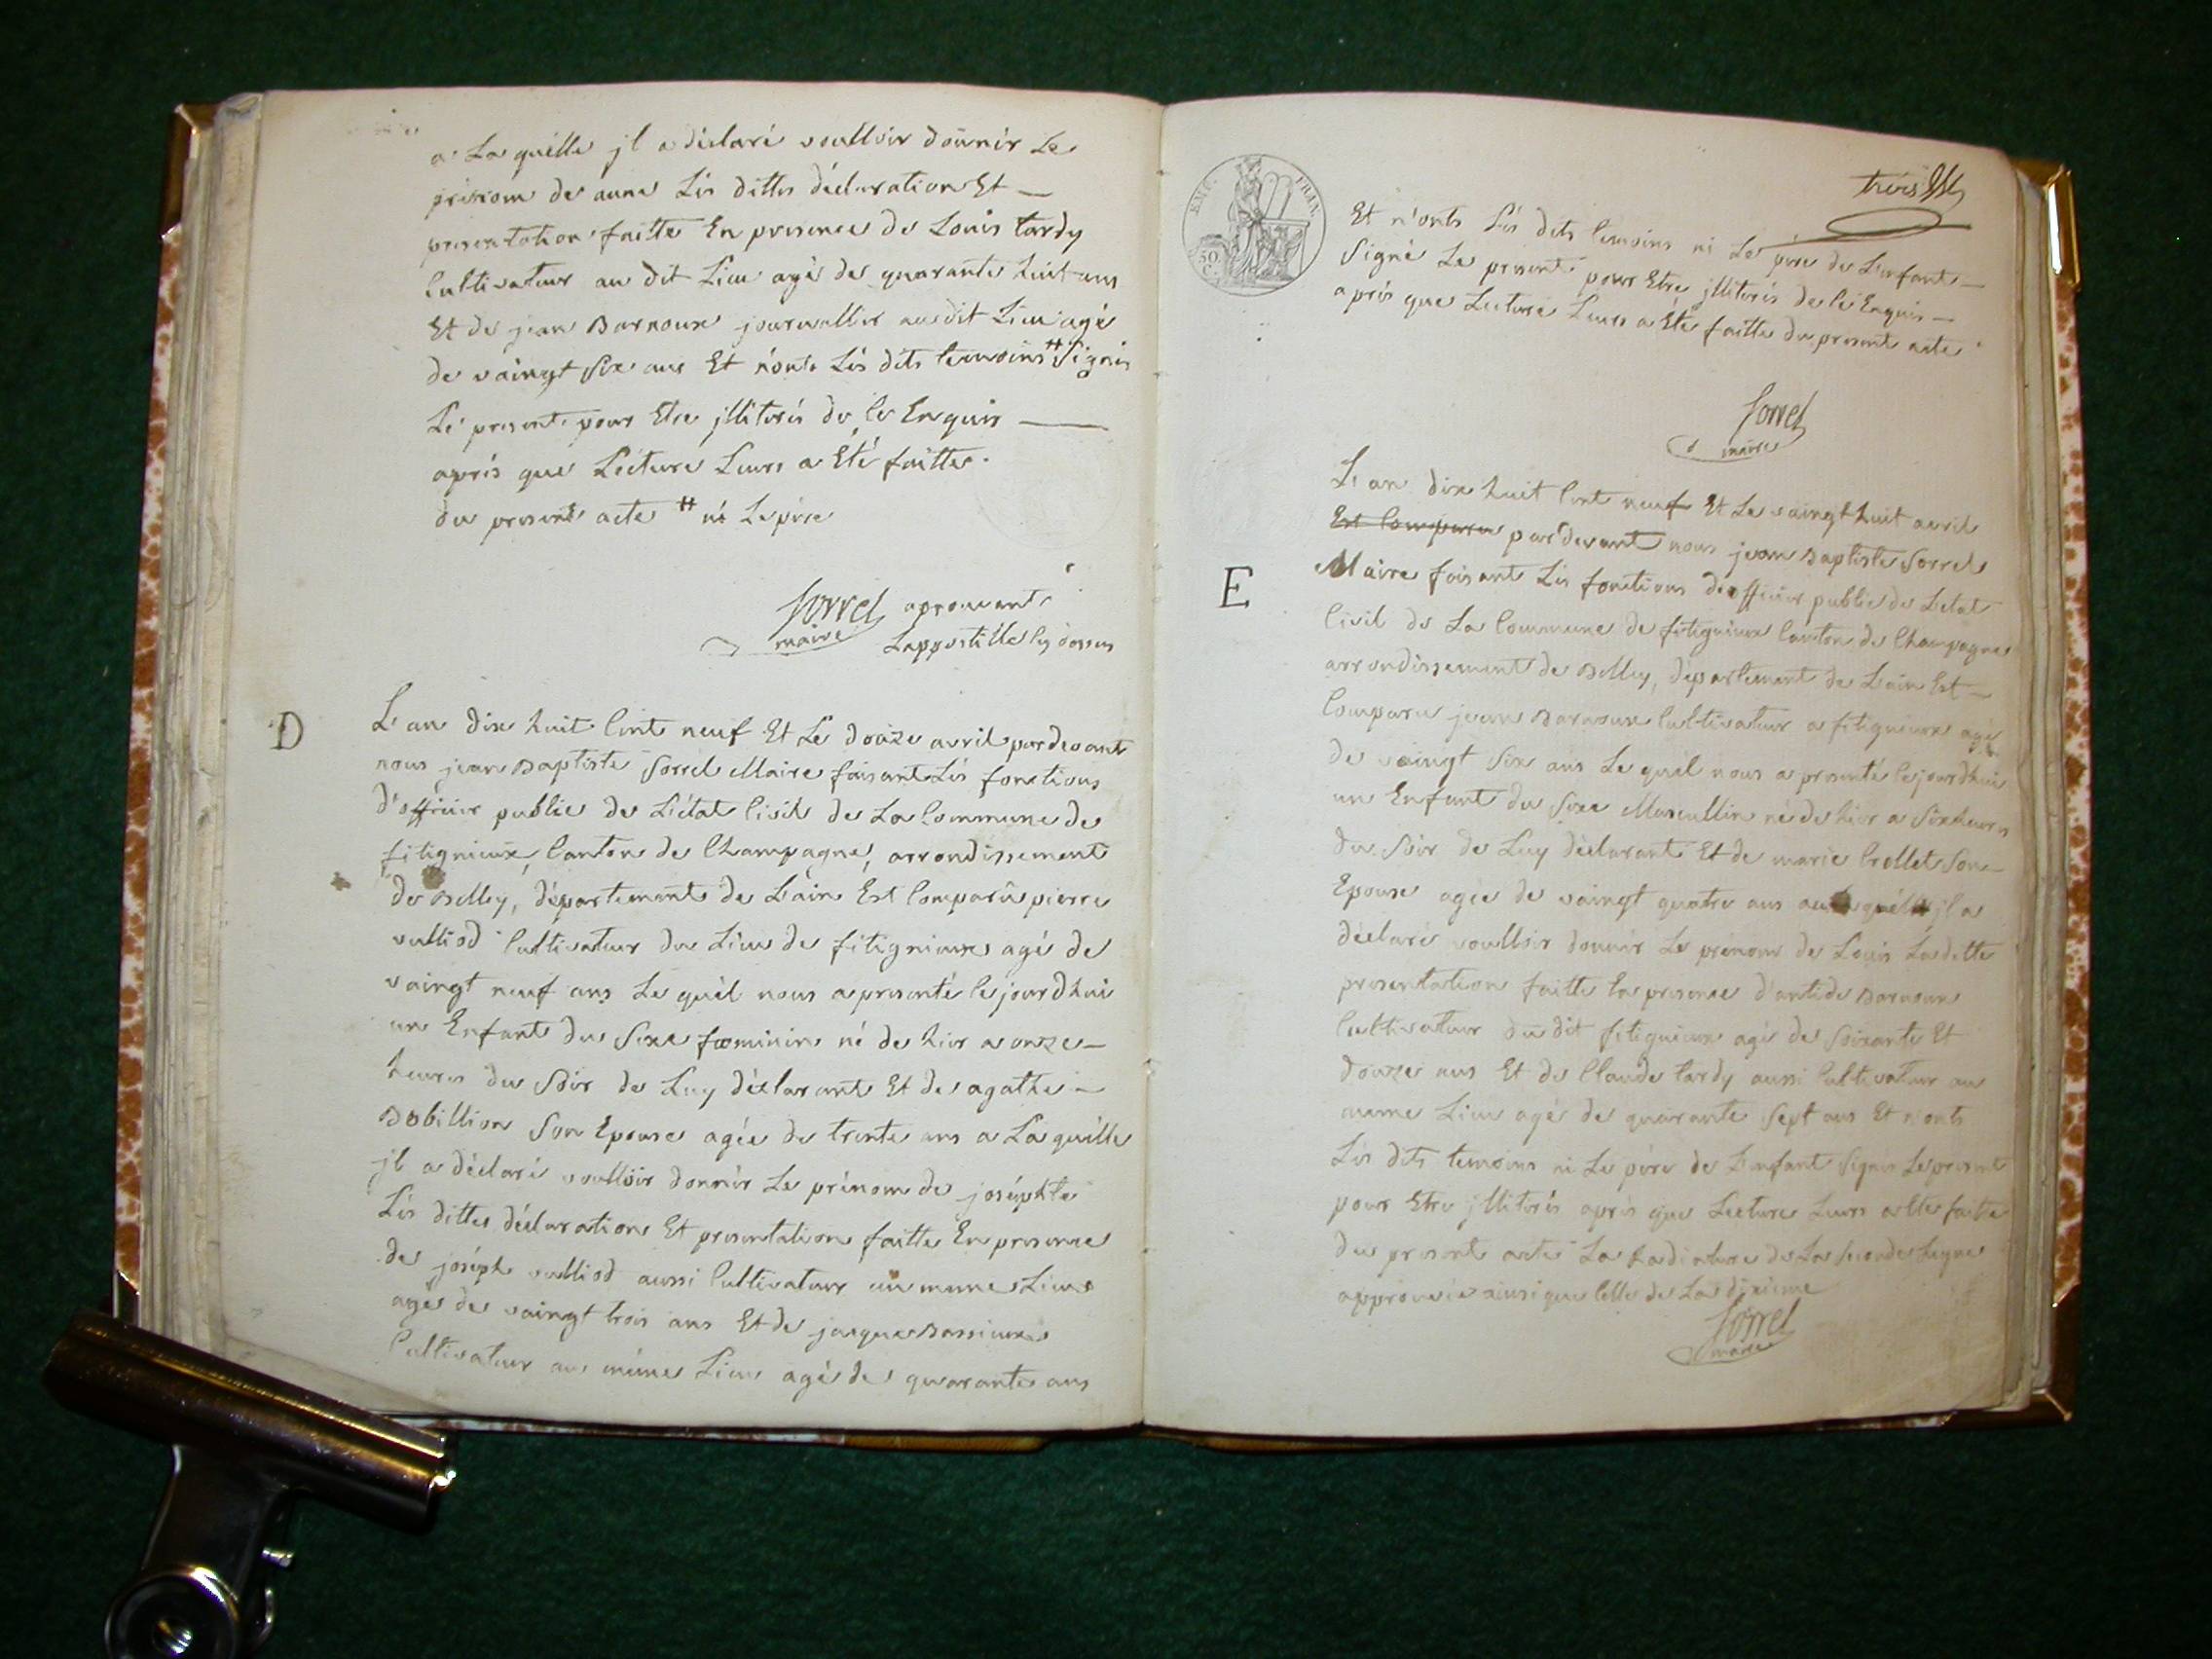 a La quélle jl a déclaré voulloir donnér Le
prénom de anne Lés dittes déclaration Et —
presentation faitte En presence de Louis tardy
Cultivateur au dit Lieu agé de quarante huit ans
Et de jean Barnoux journallier audit Lieu agé
de vaingt Six ans Et n'onts Lés dits temoins # Signés
Le present pour Etre jllitérés de Ce Enquis —
aprés que Lécture Leurs a Eté faitte
du present acte # ni Le pére
Sorrel aprouvant
maire Lappostille Cy dessus
D
L'an dix huit Cent neuf Et Le douze avril pardevant
nous jean Baptiste Sorrel Maire faisant Lés fonctions
d'officier public de L'état Civil de La Commune de
fitignieux, Canton de Champagne, arrondissement
de Belley, département de L'ain Est Comparu pierre
vulliod Cultivateur du Lieu de fitignieux agé de
vaingt neuf ans Le quél nous a presenté Cejourdhui
un Enfant du Sexe fœminin né de hier a onze —
heures du Soir de Luy déclarant Et de agathe —
Bobillion Son Epouse agée de trente ans a La quélle
jl a déclaré voulloir donnér Le prénom de joséphte
Lés dittes déclaration Et presentation faitte En presence
de joséph vulliod aussi Cultivateur au meme Lieu
agé de vaingt trois ans Et de jacque Bassieux
Cultivateur au méme Lieu agé de quarante ans
EMP. FRAN.
50 C.
trois
Et n'onts Lés dits temoins ni Le pére de L'enfant —
Signé Le present pour Etre jllitérés de Ce Enquis —
aprés que Lecture Leurs a Eté faitte du present acte
Sorrel
maire
E
L'an dix huit Cent neuf Et Le vaingt huit avril
Est Comparu pardevant nous jean Baptiste Sorrel
Maire faisant Lés fonctions d'officier public de L'etat
Civil de La Commune de fitignieux Canton de Champagne
arrondissement de Belley, département de L'ain Est —
Comparu jean Barnoux Cultivateur a fitignieux agé
de vaingt Six ans Le quél nous a presenté Cejourdhui
un Enfant du Sexe Masculin né de hier a Six heures
du Soir de Luy déclarant Et de marie Crollet Son
Epouse agée de vaingt quatre ans au quél jl a
déclaré voulloir donnér Le prénom de Louis La ditte
presentation faitte En presence d'antide Barnoux
Cultivateur du dit fitignieux agé de Soixante Et
douze ans Et de Claude tardy aussi Cultivateur au
meme Lieu agé de quarante Sept ans Et n'onts
Lés dits temoins ni Le pére de L'enfant Signés Le present
pour Etre jllitérés aprés que Lecture Leurs a Ete faitte
du present acte La Radiature de La Seconde Ligne
approuvée ainsi que Celle de La dixieme
Sorrel
maire